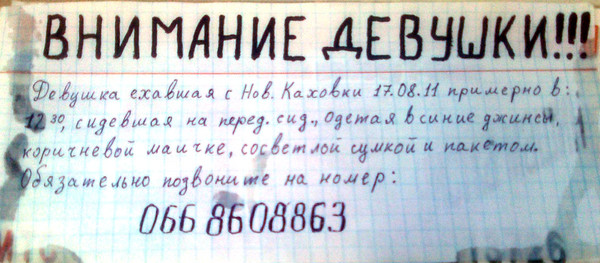 ВНИМАНИЕ ДЕВУШКИ!!!
Девушка ехавшая с Нов. Каховки 17.08.11 примерно в:
12 30, сидевшая на перед. сид., одетая в синие джинсы,
коричневой маичке, сосветлой сумкой и пакетом.
Обязательно подвоните на номер:
066 8608863